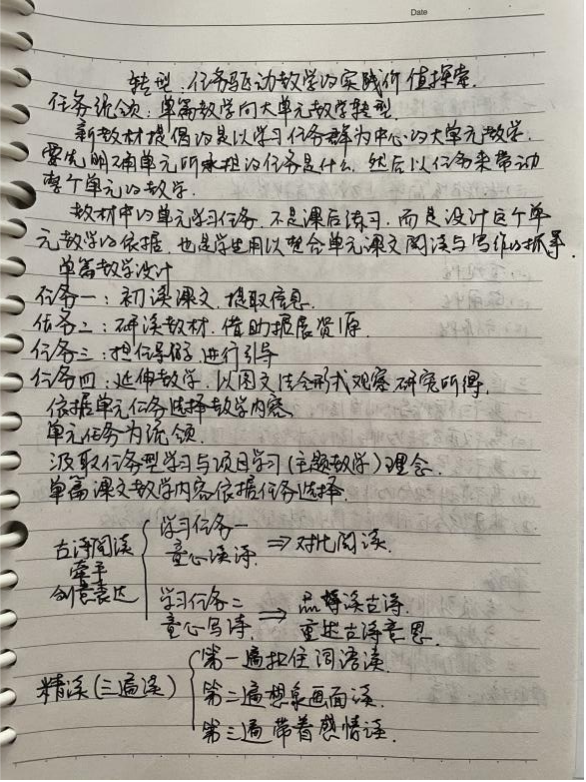 Date
转型：任务驱动教学的实践价值探索.
任务统领：单篇教学向大单元教学转型.
新教材提倡的是以学习任务群为中心的大单元教学.
要先明确单元所承担的任务是什么，然后以任务来带动
整个单元的教学.
教材中的单元学习任务，不是课后练习，而是设计这个单
元教学的依据，也是学生用以整合单元课文阅读与写作的抓手.
单篇教学设计
任务一：初读课文，提取信息.
任务二：研读教材，借助拓展资源.
任务三：担任导师，进行引导
任务四：延伸教学，以图文结合形式观察研究所得.
依据单元任务选择教学内容.
单元任务为统领.
汲取任务型学习与项目学习(主题教学)理念.
单篇课文教学内容依据任务选择.
古诗阅读
牵手
创意表达
学习任务一
童心读诗 ⇒ 对比阅读.
学习任务二
童心写诗 ⇒ 品读古诗.
重述古诗意思.
精读(三遍读)
第一遍抓住词语读.
第二遍想象画面读.
第三遍带着感情读.